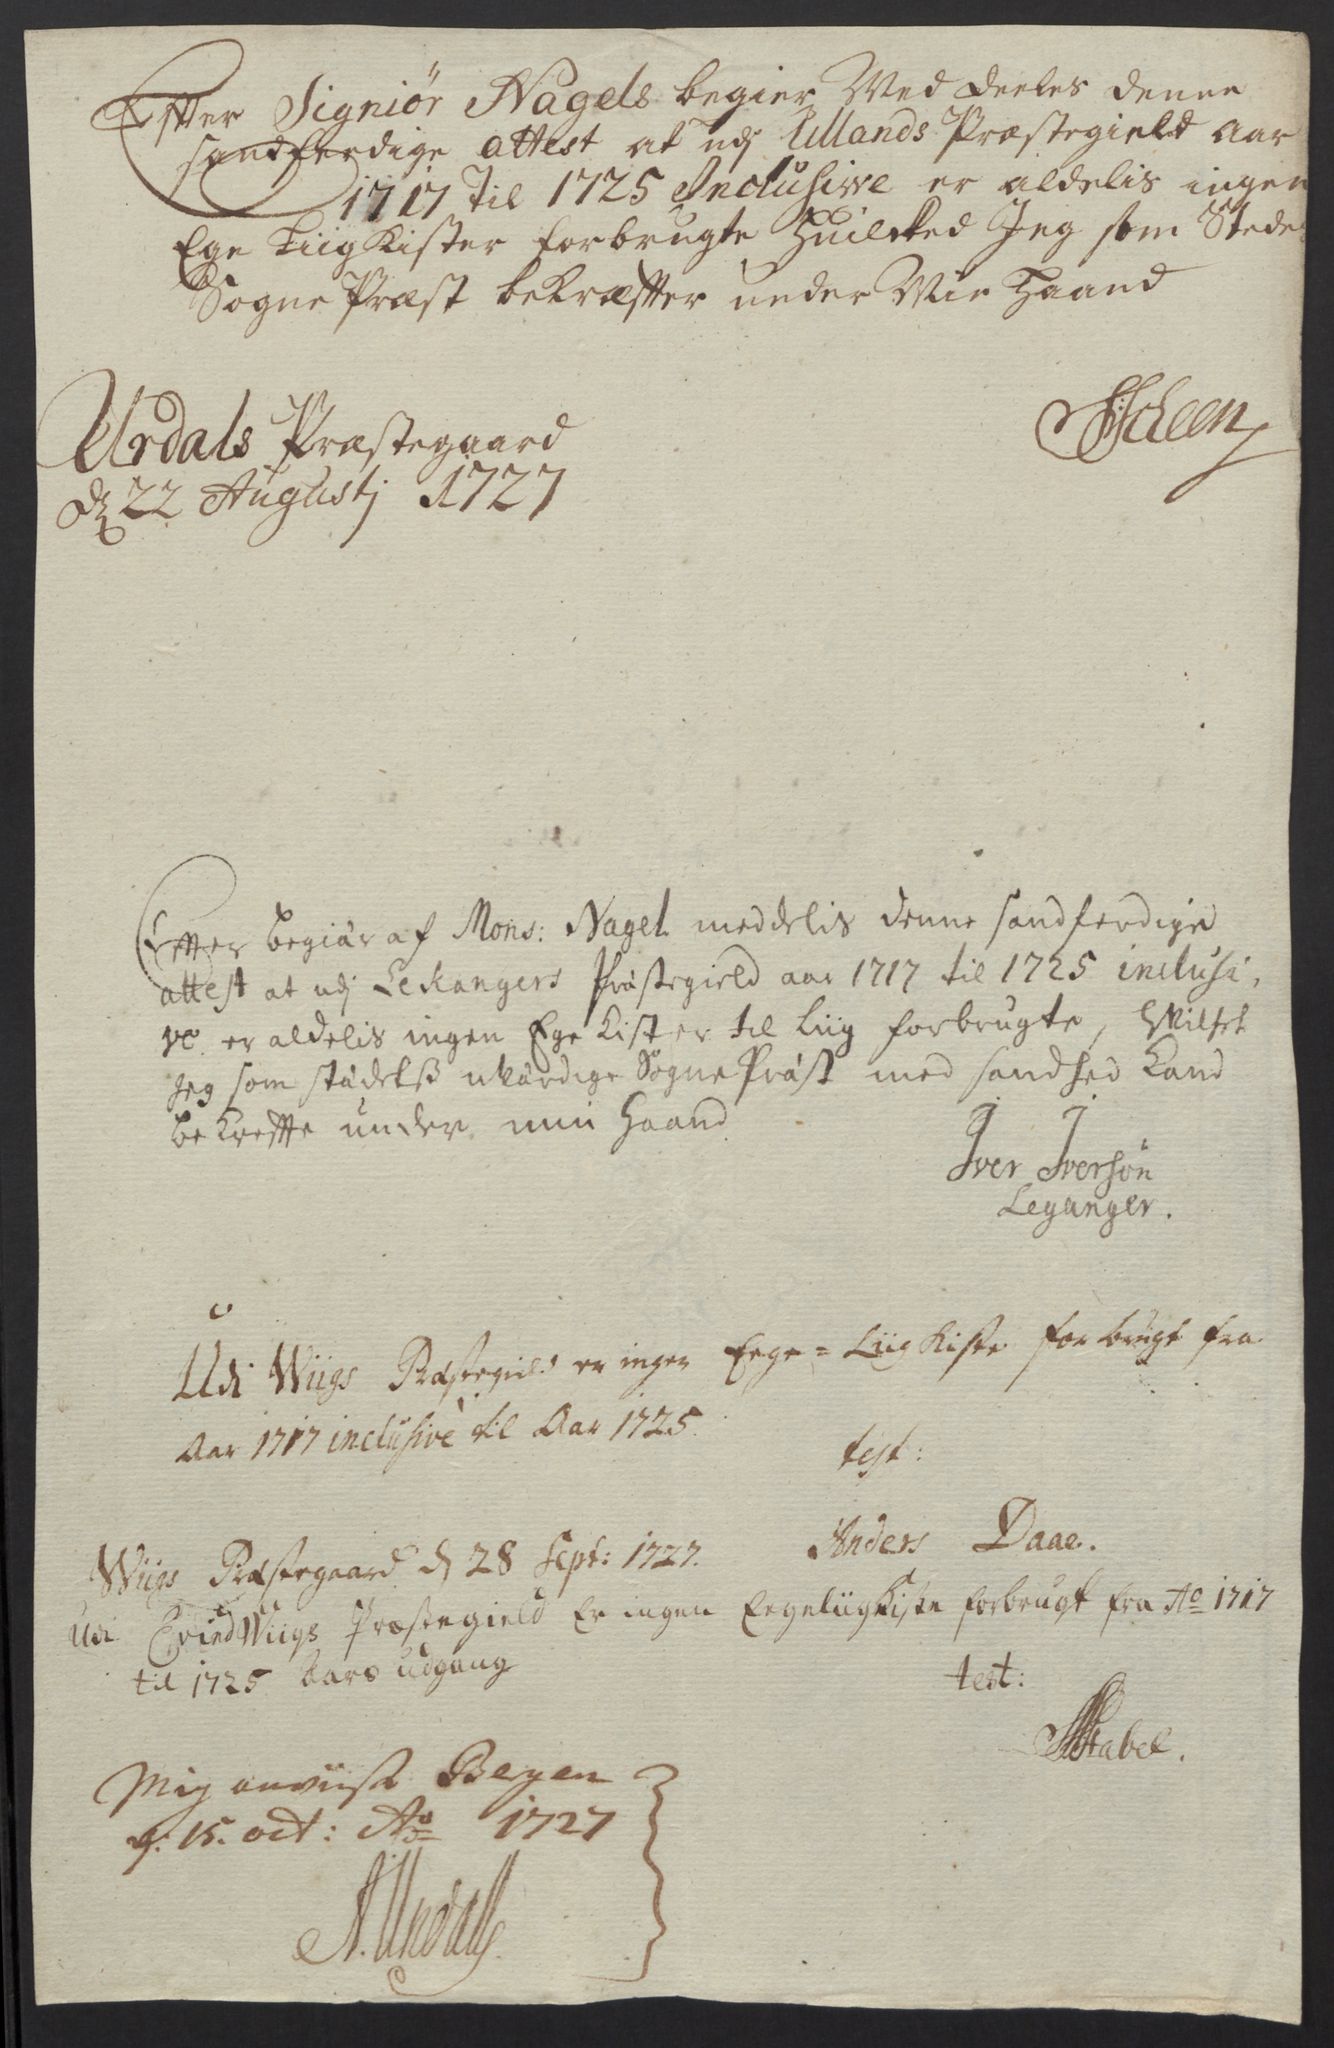 Effter Signiör Nagels begier Med deeles denne
sandferdige attest at udj Ullands Præstegield aar
1717 til 1725 Inclusive er aldelis ingen
Ege Liig Kister forbrugte Huilcked Jeg som Stedets
Sogne Præst bekræffter under Min Haand
Scheen
Urdals Præstegaard
d 22 Augustj 1727
Efter begiär af Mons: Nagel meddelis denne sandferdige
attest at udj Lekangers Prästegield aar 1717 til 1725 inclusi,
ve er aldelis ingen Ege kister til Liig forbrugte, Hvilket
Jeg som städetß uvärdige Sogne Präst med sandhed kand
bekreffte under min Haand
Iver Iversön
Leganger.
Udi Wiigs Præstegield er ingen Eege = Liig kiste forbrugt fra
Aar 1717 inclusive til Aar 1725.
test:
Anders Daae.
Wiigs Præstegaard d 28 Sept: 1727.
Udi EvindWiigs Præstegield Er ingen Eegeliigkiste forbrugt fra Ao 1717
til 1725 Aars udgang
test:
Stabel.
Mig anviist Bergen
d: 15. oct: Ao 1727
A. Undall